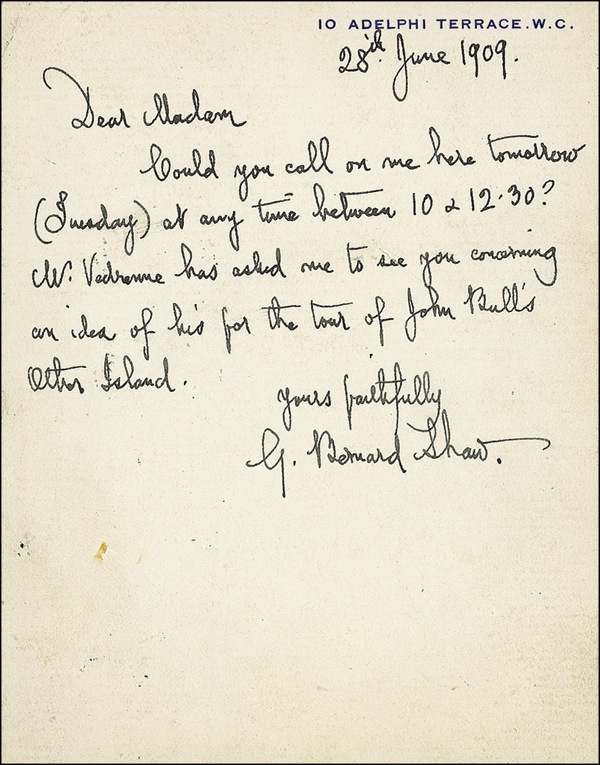 10 ADELPHI TERRACE. W.C.
28th June 1909.
Dear Madam
Could you call on me here tomorrow
(Tuesday) at any time between 10 & 12·30?
Mr. Vedrenne has asked me to see you concerning
an idea of his for the tour of John Bull's
Other Island.
yours faithfully
G. Bernard Shaw.